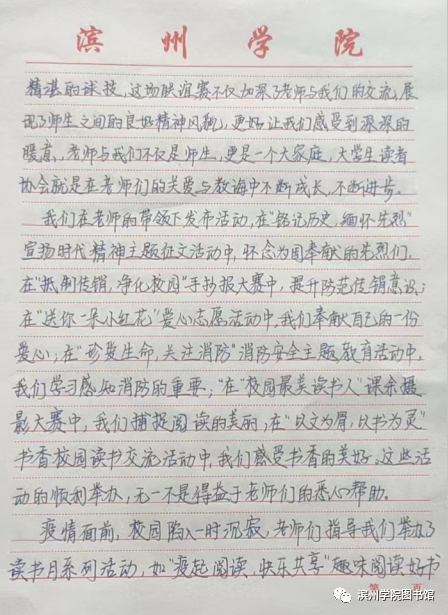 滨州学院
精湛的球技，这场联谊赛不仅加深了老师与我们的交流，展
现了师生之间的良好精神风貌，更好让我们感受到深深的
暖意，老师与我们不仅是师生，更是一个大家庭，大学生读者
协会就是在老师们的关爱与教诲中不断成长，不断进步。
我们在老师的带领下发布活动，在“铭记历史，缅怀先烈”
宣扬时代精神主题征文活动中，怀念为国奉献的先烈们，
在“抵制传销，净化校园”手抄报大赛中，提升防范传销意识；
在“送你一朵小红花”爱心志愿活动中，我们奉献自己的一份
爱心；在“珍爱生命，关注消防”消防安全主题教育活动中，
我们学习感知消防的重要；“在“校园最美读书人”课余摄
影大赛中，我们捕捉阅读的美丽；在“以文为骨，以书为灵”
书香校园读书交流活动中，我们感受书香的美好。这些活
动的顺利举办，无一不是得益于老师们的悉心帮助。
疫情面前，校园陷入一时沉寂，老师们指导我们举办了
读书月系列活动，如“疫起阅读，快乐共享”趣味阅读好书
第 页
滨州学院图书馆